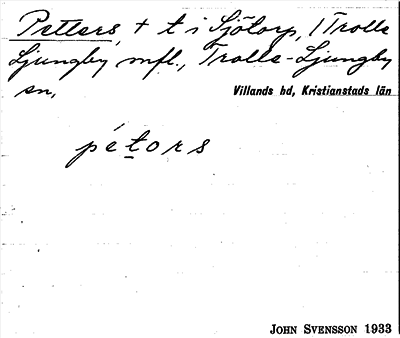 Petters, + t i Sjötorp, 1 Trolle
Ljungby mfl., Trolle-Ljungby
sn, Villands hd, Kristianstads län
pétors
JOHN SVENSSON 1933